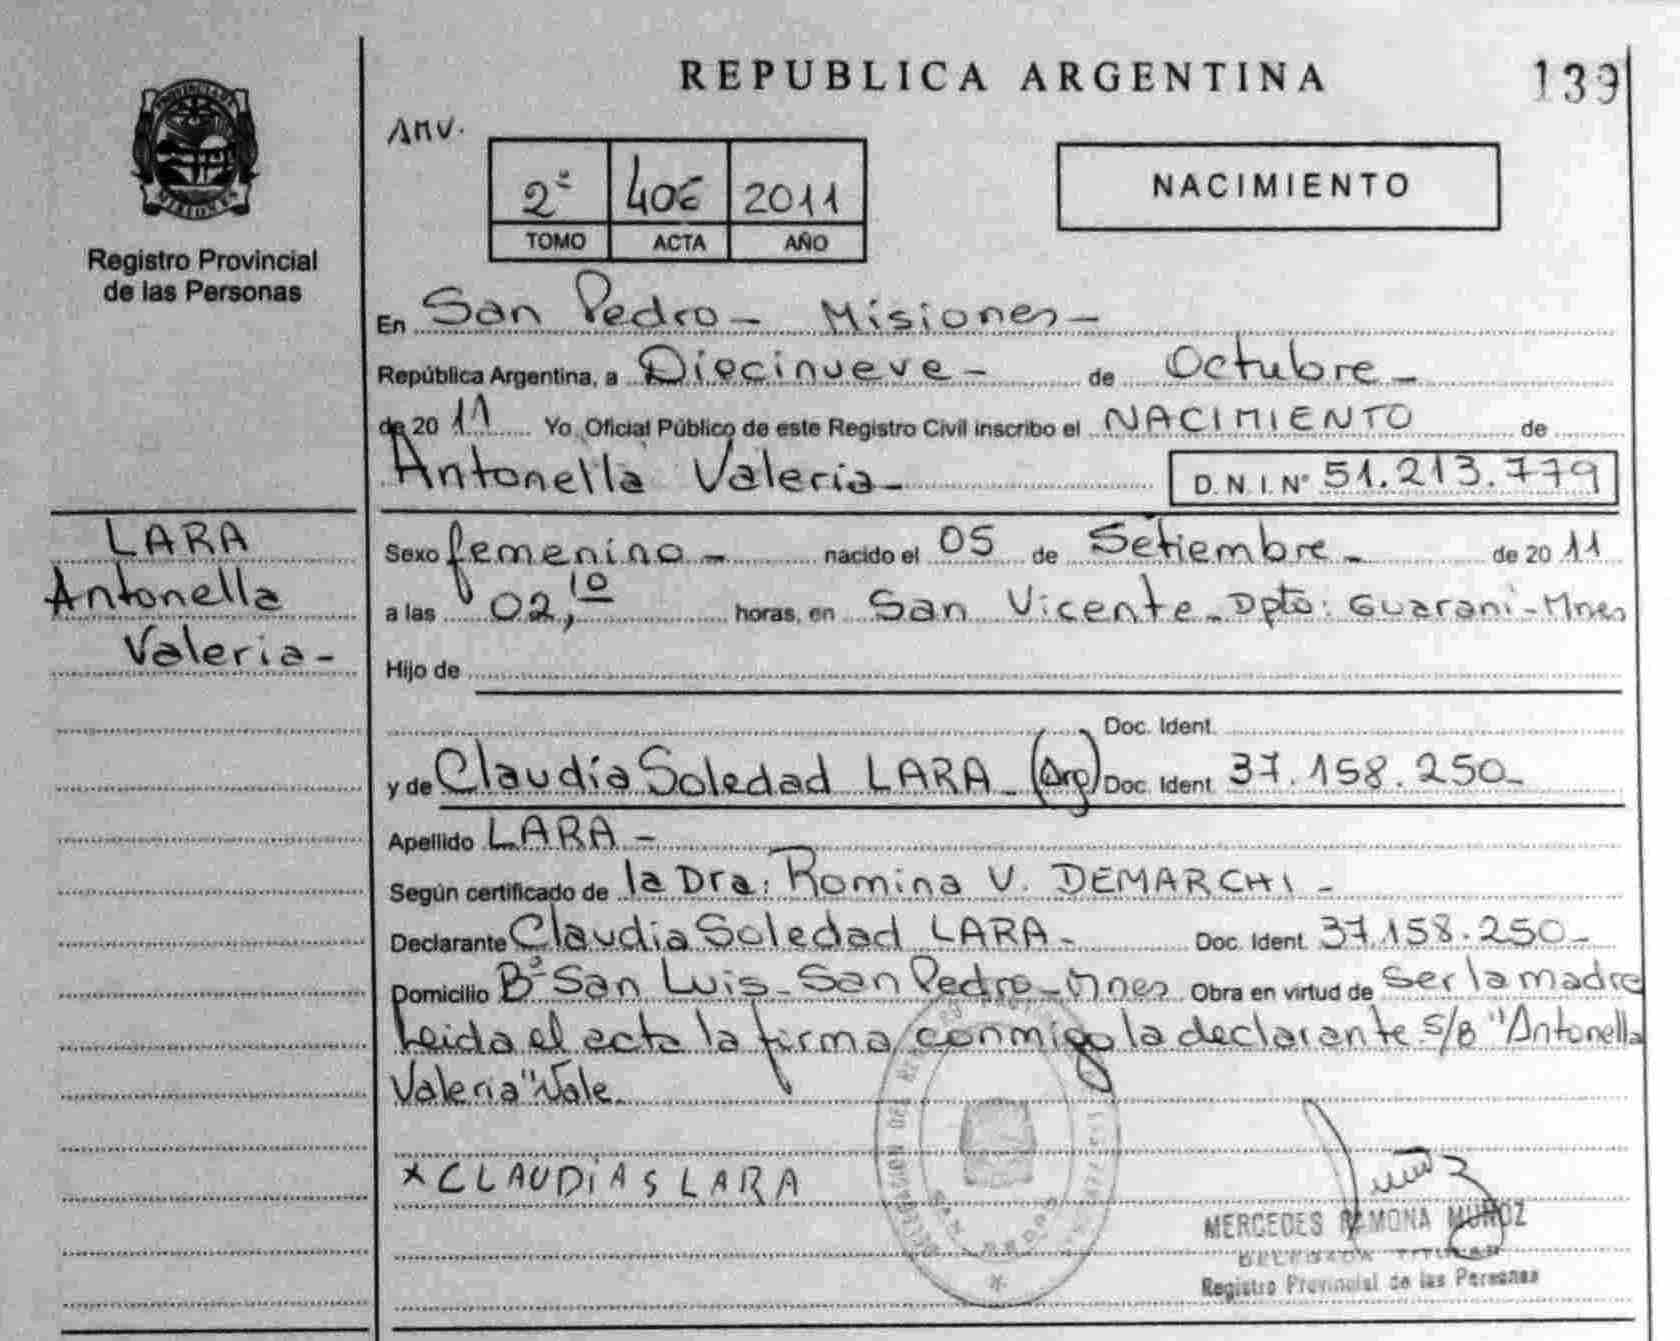 REPUBLICA ARGENTINA
139
AMV.
2º 406 2011
TOMO ACTA AÑO
NACIMIENTO
PROVINCIA DE
MISIONES
Registro Provincial
de las Personas
En San Pedro - Misiones -
República Argentina, a Diecinueve - de Octubre -
de 20 11 Yo Oficial Público de este Registro Civil inscribo el NACIMIENTO de
Antonella Valeria - D.N.I. Nº 51.213.779
LARA
Antonella
Valeria -
Sexo femenino - nacido el 05 de Setiembre - de 20 11
a las 02,10 horas, en San Vicente - Dpto: Guaraní - Mnes
Hijo de
Doc. Ident.
y de Claudia Soledad LARA - (Arg) Doc. Ident. 37.158.250 -
Apellido LARA -
Según certificado de la Dra: Romina V. DEMARCHI -
Declarante Claudia Soledad LARA - Doc. Ident. 37.158.250 -
Domicilio Bº San Luis - San Pedro - Mnes Obra en virtud de ser la madre
Leida el acta la firma conmigo la declarante S/B "Antonella
Valeria" Vale.
x CLAUDIA S LARA
MERCEDES RAMONA MUÑOZ
DELEGADA TITULAR
Registro Provincial de las Personas